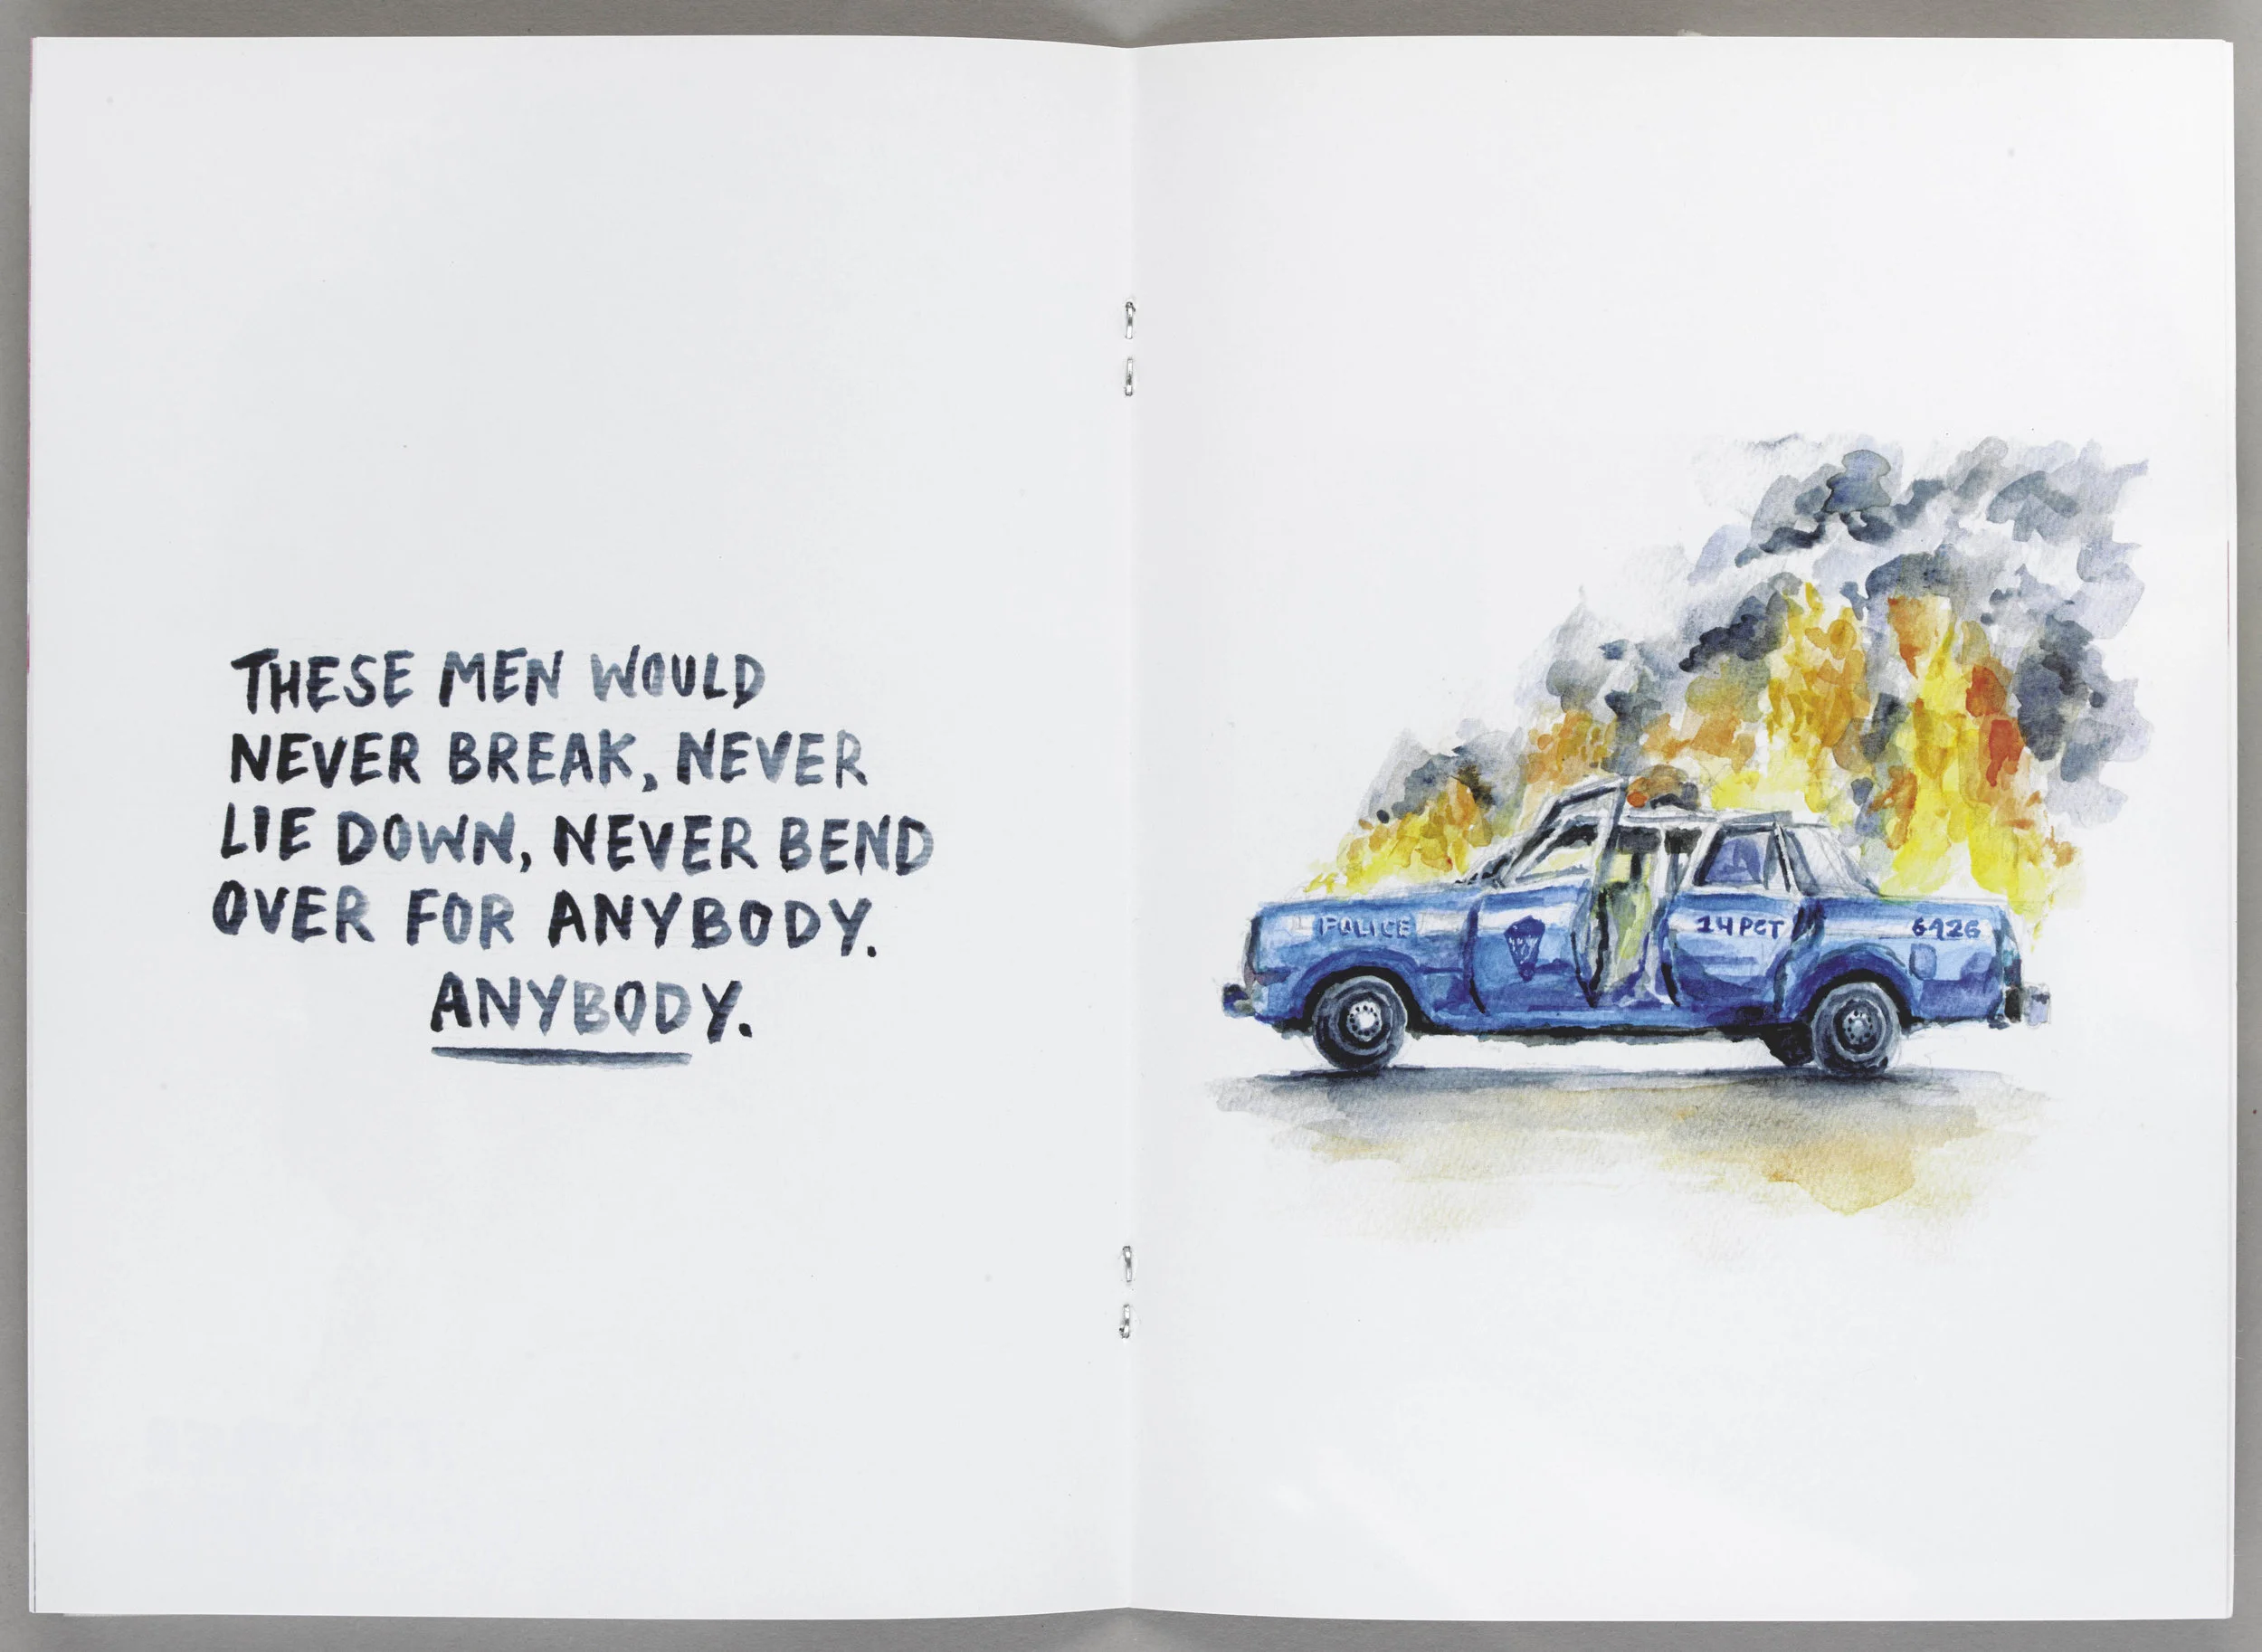 THESE MEN WOULD
NEVER BREAK, NEVER
LIE DOWN, NEVER BEND
OVER FOR ANYBODY.
ANYBODY.
POLICE
14 PCT
6426